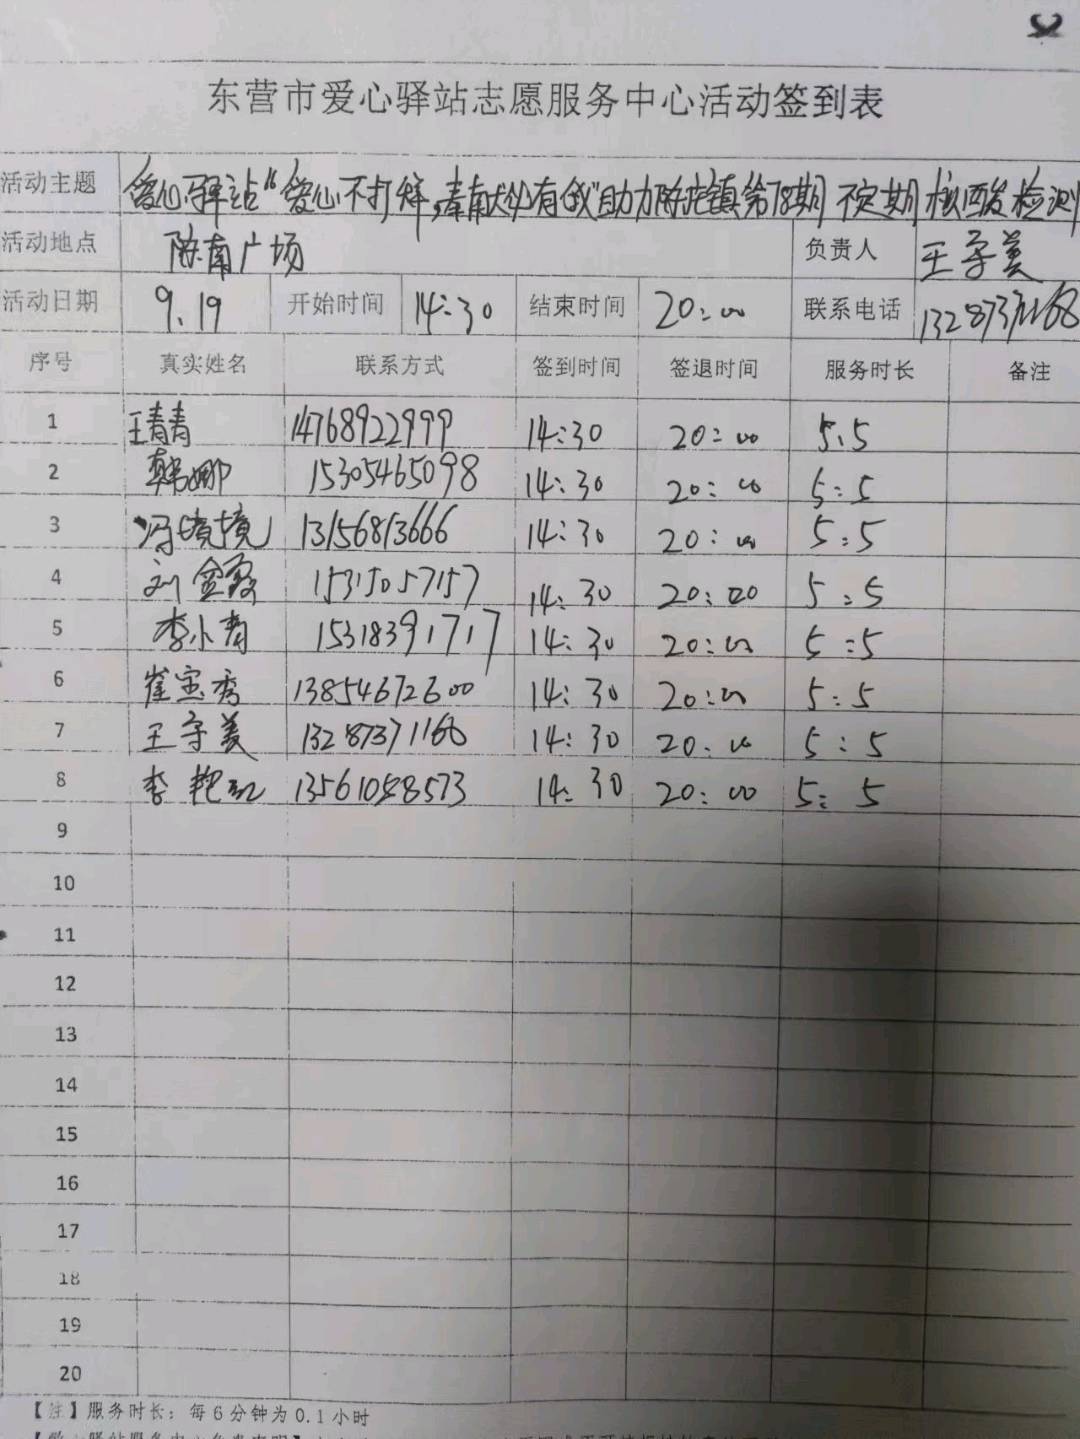 东营市爱心驿站志愿服务中心活动签到表
活动主题 爱心驿站"爱心不打烊,奉献 有我"助力陈庄镇第78期 不定期 核酸检测
活动地点 陈南广场 负责人 王守美
活动日期 9.19 开始时间 14:30 结束时间 20:00 联系电话
序号 真实姓名 联系方式 签到时间 签退时间 服务时长 备注
1 王青青 14768922999 14:30 20:00 5.5
2 韩娜 15305465098 14:30 20:00 5:5
3 冯境境 13156813666 14:30 20:00 5:5
4 刘金霞 15315057157 14:30 20:00 5:5
5 李小青 15318391717 14:30 20:00 5:5
6 崔宝秀 13854672600 14:30 20:00 5:5
7 王守美 13287371168 14:30 20:00 5:5
8 李艳红 13561058573 14:30 20:00 5:5
9
10
11
12
13
14
15
16
17
18
19
20
【注】服务时长:每6分钟为0.1小时